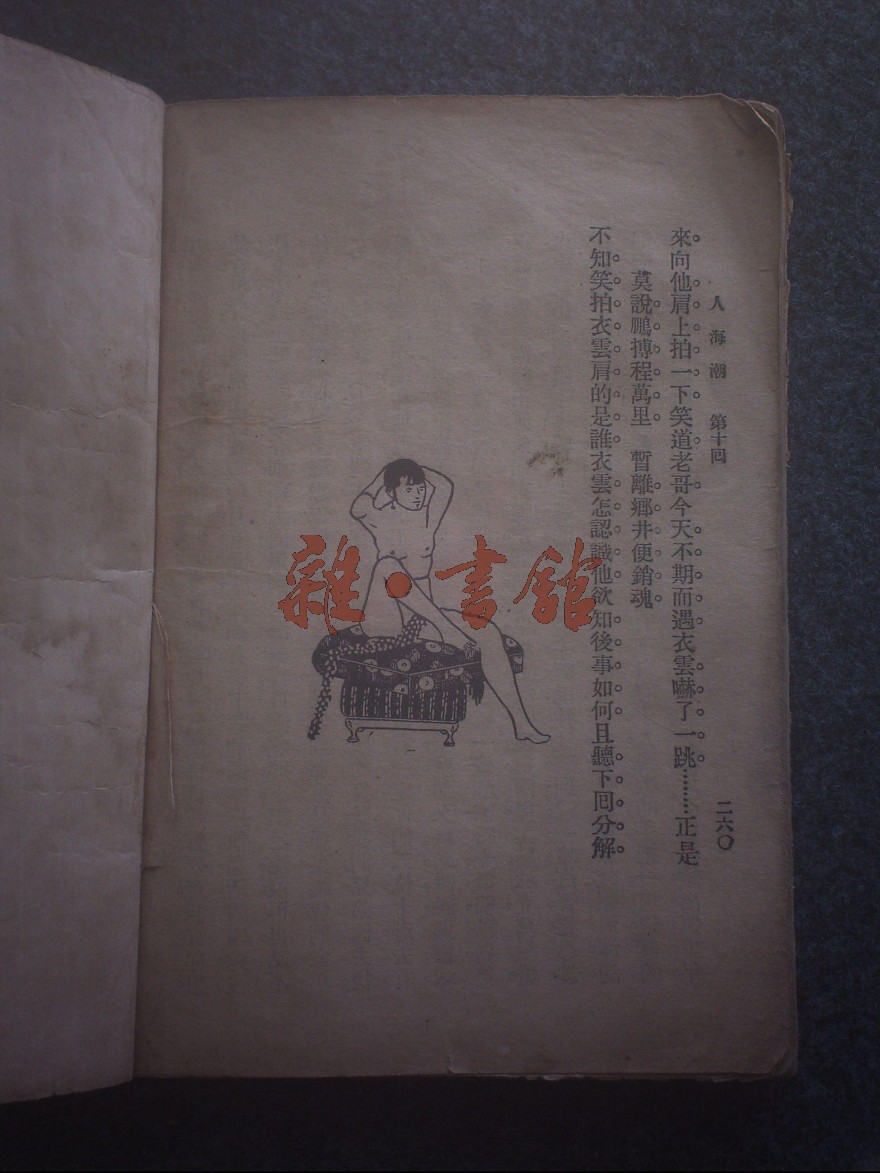 人海潮 第十回 二六〇
來向他肩上拍一下笑道老哥今天不期而遇衣雲嚇了一跳………正是
莫說鵬搏程萬里 暫離鄉井便銷魂
不知笑拍衣雲肩的是誰衣雲怎認識他欲知後事如何且聽下回分解
雜·書館